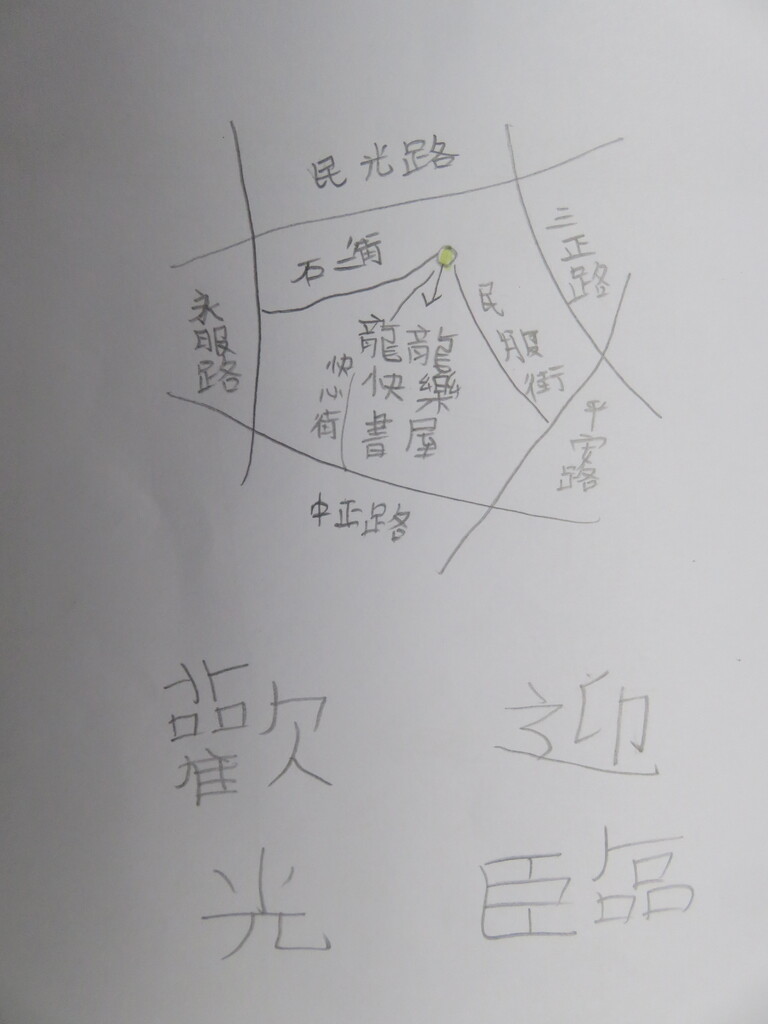 民光路
三正路
石二街
永服路
民服街
龍快書
龍樂屋
快心街
平安路
中正路
歡迎
光臨